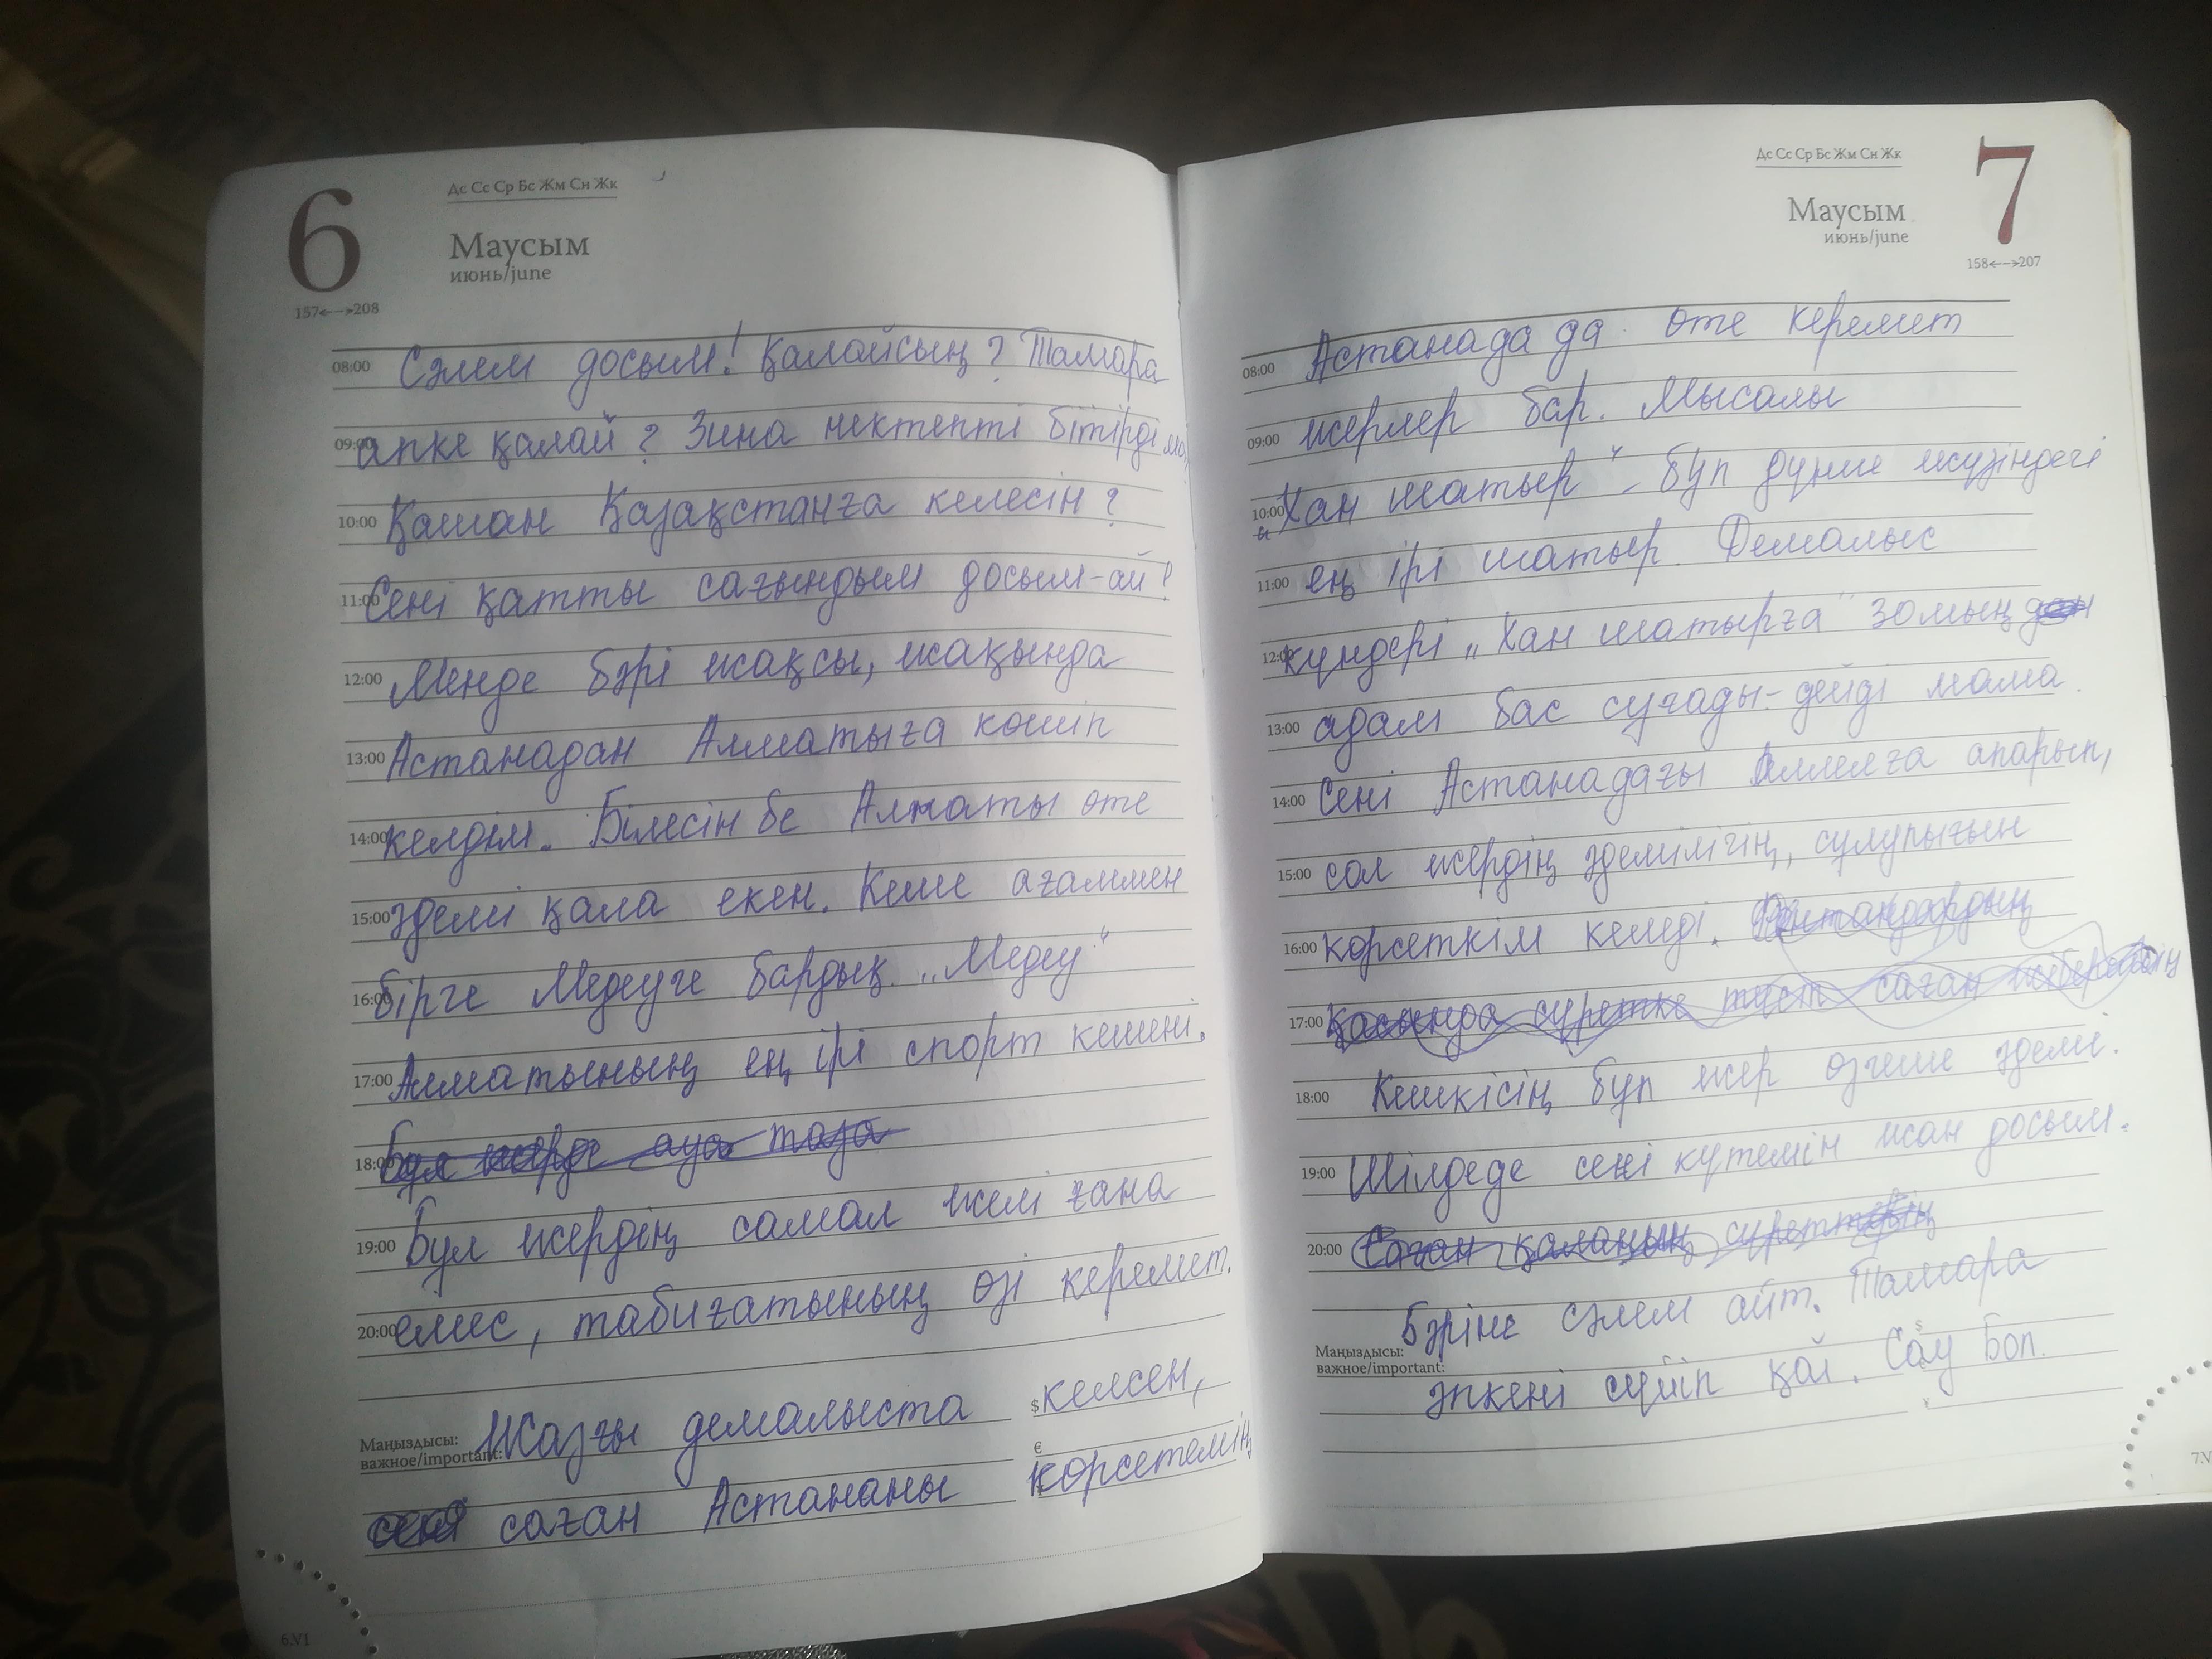 6
Дс Сс Ср Бс Жм Сн Жк
Маусым
июнь/june
157←--→208
08:00 Сәлем досым! Қалайсың? Тамара
09:00 апке қалай? Зина мектепті бітірді ма,
10:00 Қашан Қазақстанға келесін?
11:00 Сені қатты сағындым досым-ай!
12:00 Менде бәрі жақсы, жақында
13:00 Астанадан Алматыға көшіп
14:00 келдім. Білесін бе Алматы өте
15:00 әдемі қала екен. Кеше ағаммен
16:00 бірге Медеуге бардық. „Медеу"
17:00 Алматының ең ірі спорт кешені.
18:00 Бұл жерде ауа таза
19:00 Бұл жердің самал желі ғана
20:00 емес, табиғатының өзі керемет.
Маңыздысы: Жазғы демалыста $ келсен,
важное/important: €
саған Астананы көрсетемің
6.VI
Дс Сс Ср Бс Жм Сн Жк
7
Маусым
июнь/june
158←--→207
08:00 Астанада да өте керемет
09:00 жерлер бар. Мысалы
10:00 „Хан шатыр" - бұл дүние жүзіндегі
11:00 ең ірі шатыр. Демалыс
12:00 күндері „Хан шатырға" 30 мың
13:00 адам бас сұғады - дейді мама.
14:00 Сені Астанадағы Аллелға апарып,
15:00 сол жердің әдемілігің, сұлулығын
16:00 көрсеткім келеді.
17:00 қасында суретке түсіп саған
18:00 Кешкісің бұл жер өзгеше әдемі.
19:00 Шілдеде сені күтемін жан досым.
20:00 Саған қаланың
Бәріне сәлем айт. Тамара
Маңыздысы:
важное/important:
әпкені сүйіп қой. Сау Бол.
7.V